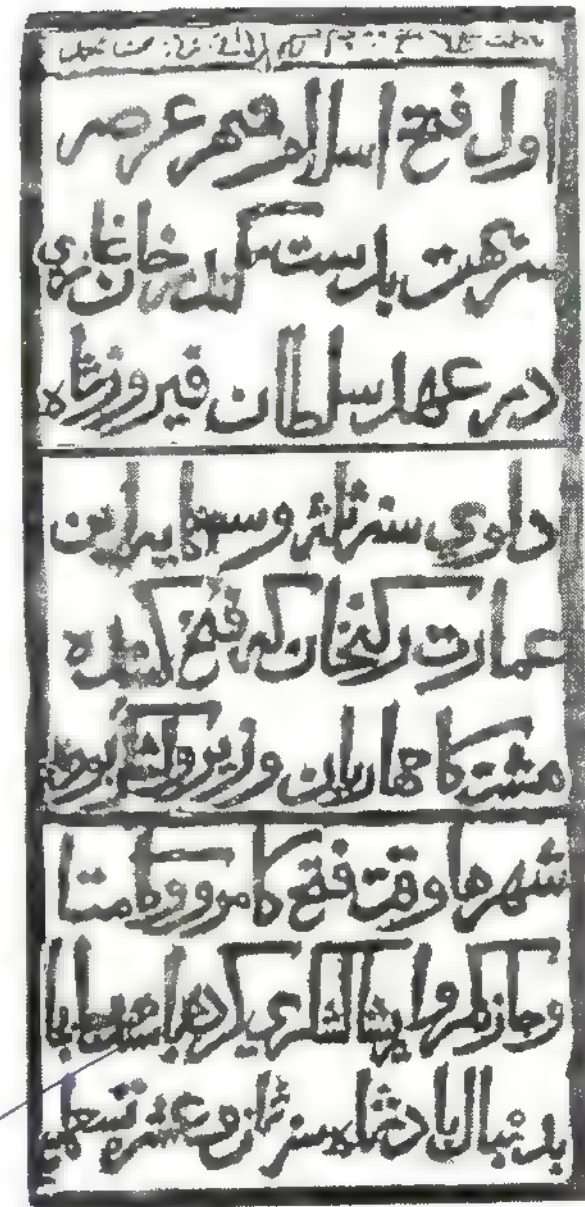 اول فتح اسلام شهر عرصه
سریهت بدست سکندر خان غازی
در عهد سلطان فیروز شاه
دلوی سنه ثلثه و سبعمایه این
عمارت رکنخان که فتح کننده
هشت کامهاریان وزیر و لشکر بوده
شهرها وقت فتح کامرو و کامتا
و جازنکر و اریشا لشکری کرده باشند جابجا
بدنبال بادشاه سنه ثمان و عشره تسعمایه